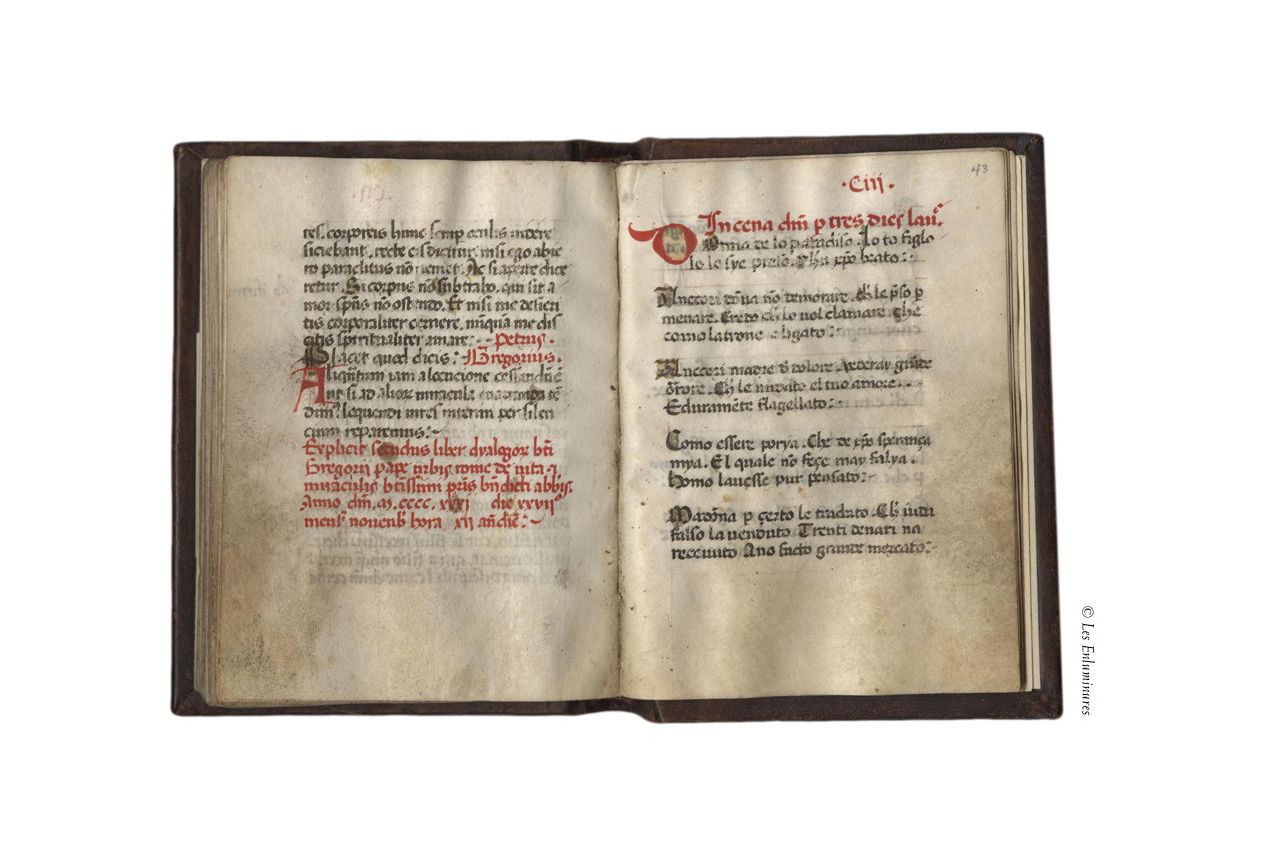 ·Cii·
res. corporeis hunc semp oculis uidere
siciebant. recte eis dicitur. nisi ego abie
ro paraclitus nō ueniet. Ac si aperte dice
retur. Si corpus nō subtrabo. qui sit a
mor spūs nō ostendo. Et nisi me desieri
tis corporaliter cernere. nūquā me dis
citis spiritualiter amare:·- ·Petrus·
Placet quod dicis: Gregorius.
Aliqūtum iam a locucione cessandū ē
Aut si ad alior miracula enarranda tē
dim? loquendi uires interim per silen
cium reparemus:~
Explicit secundus liber dyalogor bti
Gregorii pape urbis rome de uita ⁊
miraculis btissimi pris bn̄dicti abbis.
Anno dm̄. M. cccc. xxxi die xxvii°
mens nouenb hora xii an̄ diē:~
43
·Ciii·
In cena dm̄ p tres dies lau.
Donna de lo paradiso. Lo to figlo
lo lo sye preso. yħu xpo beato:~
Anccori dōna nō demorare. Ch le p̄so p
menare. Creto ch lo uol clamare Che
como latrone e ligato:~
Anccori madre d dolore. Aueray grāde
. Ch le nudato el tuo amore..
E duramēte flagellato:~
Como essere porya. Che de xpo sperança
mya. El quale nō feçe may falya.
homo lauesse pur pensato:~
Madōna p çerto le tradato. Ch iuda
falso la uenduto Trenti denari na
receuuto Ano facto grande mercato:~
© Les Enluminures